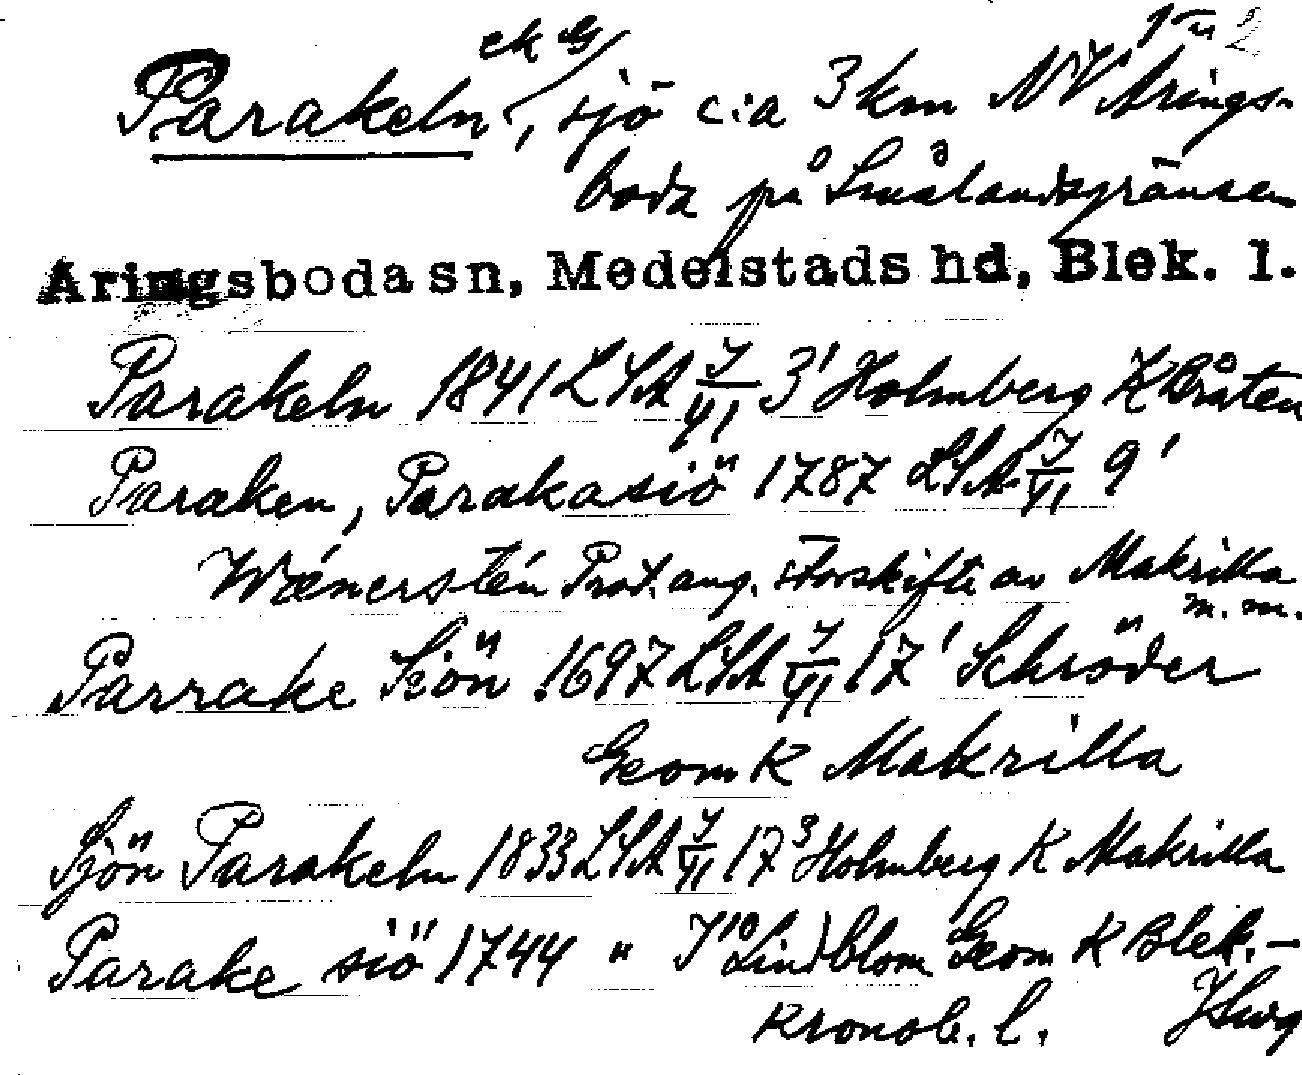 Parakeln ek G, sjö c:a 3 km NV Arings-
boda på Smålandsgränsen
Aringsboda sn, Medelstads hd, Blek. l.
Parakeln 1841 LSA J/VI 3' Holmberg K Bråten
Paraken, Parakasiö 1787 LSA J/VI 9'
Wänerstén Prot. ang. storskifte av Makrilla m. m.
Parrake Siön 1697 LSA J/VI 17' Schröder
Geom K Makrilla
Sjön Parakeln 1833 LSA J/VI 17³ Holmberg K Makrilla
Parake siö 1744 " J¹⁰ Lindblom Geom K Blek.-
Kronob. l.